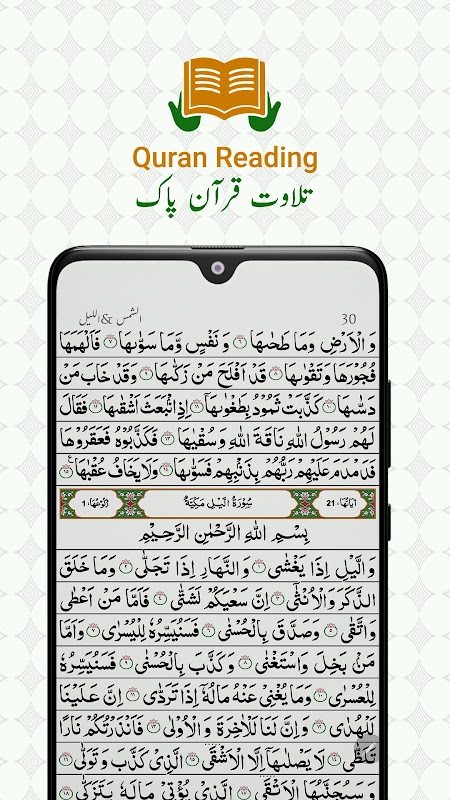 Quran Reading
تلاوت قرآن پاک
الشمس & الليل
30
وَالۡاَرۡضِ وَمَا طَحٰىهَا ۞ وَنَفۡسٍ وَّمَا سَوّٰىهَا ۞ فَاَلۡهَمَهَا
فُجُوۡرَهَا وَتَقۡوٰىهَا ۞ قَدۡ اَفۡلَحَ مَنۡ زَكّٰىهَا ۞ وَقَدۡ خَابَ مَنۡ
دَسّٰىهَا ۞ كَذَّبَتۡ ثَمُوۡدُ بِطَغۡوٰىهَا ۞ اِذِ انۡۢبَعَثَ اَشۡقٰىهَا ۞ فَقَالَ
لَهُمۡ رَسُوۡلُ اللّٰهِ نَاقَةَ اللّٰهِ وَسُقۡيٰهَا ۞ فَكَذَّبُوۡهُ فَعَقَرُوۡهَا
فَدَمۡدَمَ عَلَيۡهِمۡ رَبُّهُمۡ بِذَنۡۢبِهِمۡ فَسَوّٰىهَا ۞ وَلَا يَخَافُ عُقۡبٰهَا ۞
اٰيَاتُهَا، 21 سُوۡرَةُ الَّيۡلِ مَكِّيَّةٌ رُكُوۡعُهَا، 1
بِسۡمِ اللّٰهِ الرَّحۡمٰنِ الرَّحِيۡمِ
وَالَّيۡلِ اِذَا يَغۡشٰى ۞ وَالنَّهَارِ اِذَا تَجَلّٰى ۞ وَمَا خَلَقَ
الذَّكَرَ وَالۡاُنۡثٰٓى ۞ اِنَّ سَعۡيَكُمۡ لَشَتّٰى ۞ فَاَمَّا مَنۡ اَعۡطٰى
وَاتَّقٰى ۞ وَصَدَّقَ بِالۡحُسۡنٰى ۞ فَسَنُيَسِّرُهٗ لِلۡيُسۡرٰى ۞ وَاَمَّا
مَنۡۢ بَخِلَ وَاسۡتَغۡنٰى ۞ وَكَذَّبَ بِالۡحُسۡنٰى ۞ فَسَنُيَسِّرُهٗ
لِلۡعُسۡرٰى ۞ وَمَا يُغۡنِىۡ عَنۡهُ مَالُهٗۤ اِذَا تَرَدّٰى ۞ اِنَّ عَلَيۡنَا
لَلۡهُدٰى ۞ وَاِنَّ لَنَا لَلۡاٰخِرَةَ وَالۡاُوۡلٰى ۞ فَاَنۡذَرۡتُكُمۡ نَارًا
تَلَظّٰى ۞ لَا يَصۡلٰىهَاۤ اِلَّا الۡاَشۡقَى ۞ الَّذِىۡ كَذَّبَ وَتَوَلّٰى ۞
وَسَيُجَنَّبُهَا الۡاَتۡقَى ۞ الَّذِىۡ يُؤۡتِىۡ مَالَهٗ يَتَزَكّٰى ۞